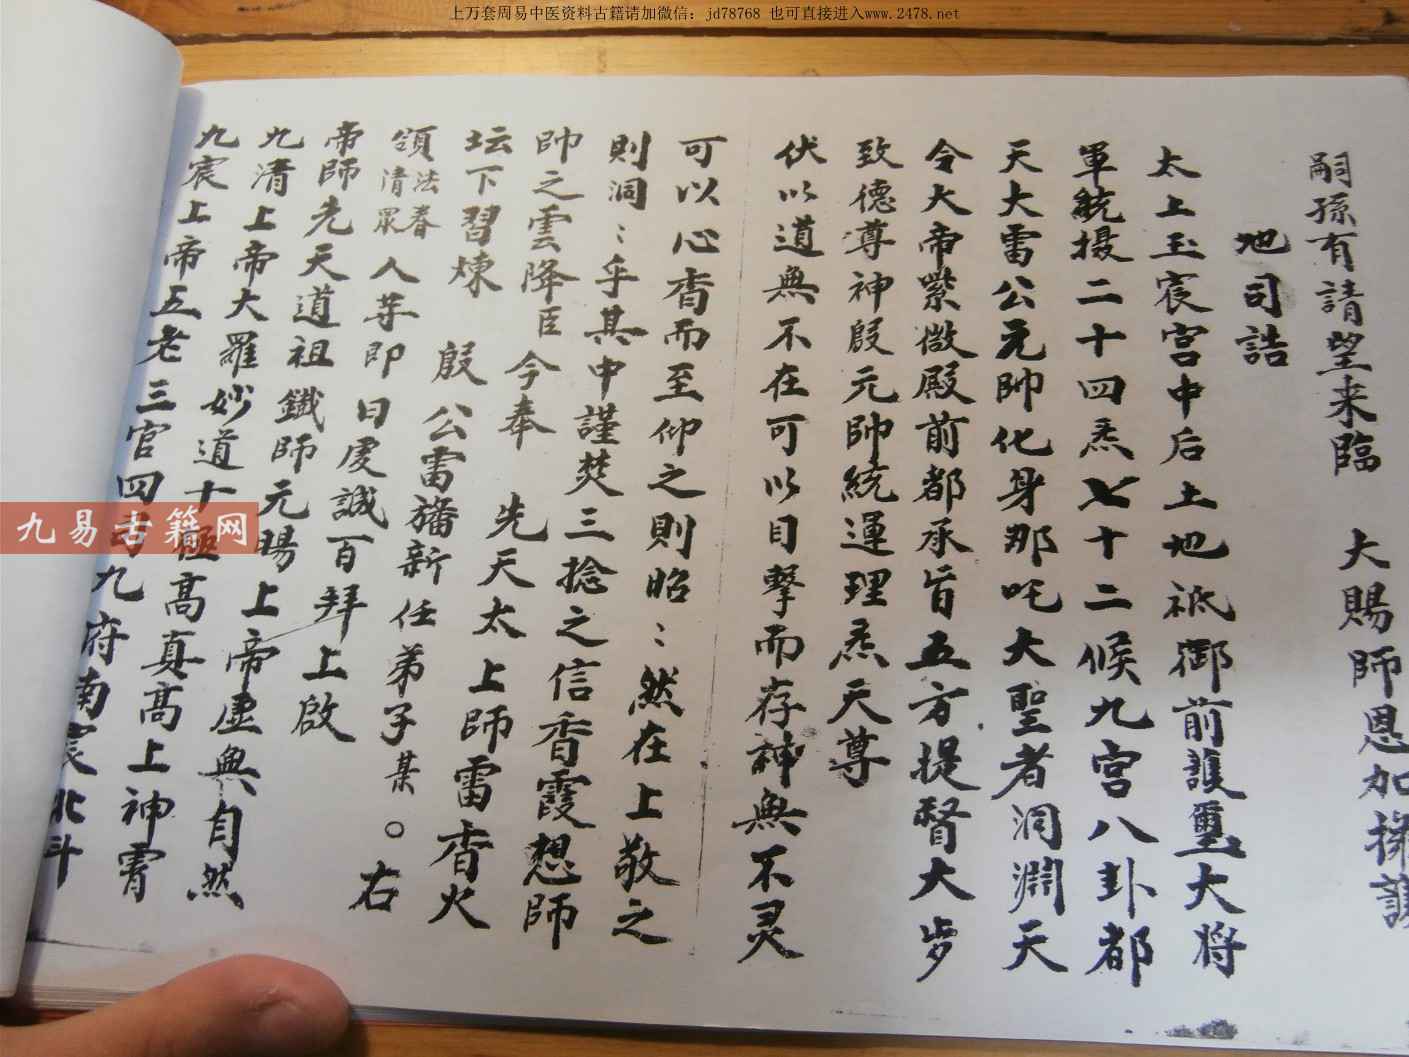 上万套周易中医资料古籍请加微信：jd78768 也可直接进入www.2478.net
嗣孫有請望来臨 大賜師恩加
地司誥
太上玉宸宫中后土地祇御前護璽大将
軍統摄二十四炁七十二候九宫八卦都
天大雷公元帥化身那吒大聖者洞淵天
令大帝紫微殿前都承旨五方提督大步
致德尊神殷元帥統運理炁天尊
伏以道無不在可以目擊而存神無不灵
可以心香而至仰之則昭〻然在上敬之
則洞〻乎其中謹焚三捻之信香霞想師
帥之雲降臣 今奉 先天太上師雷香火
坛下習煉 殷公雷旛新任弟子某。右
領法眷清眾人等即日虔誠百拜上啟
帝師先天道祖鐵師元暘上帝虚無自然
九清上帝大羅妙道十極高真高上神霄
九宸上帝五老三官四司九府南宸北斗
九易古籍网